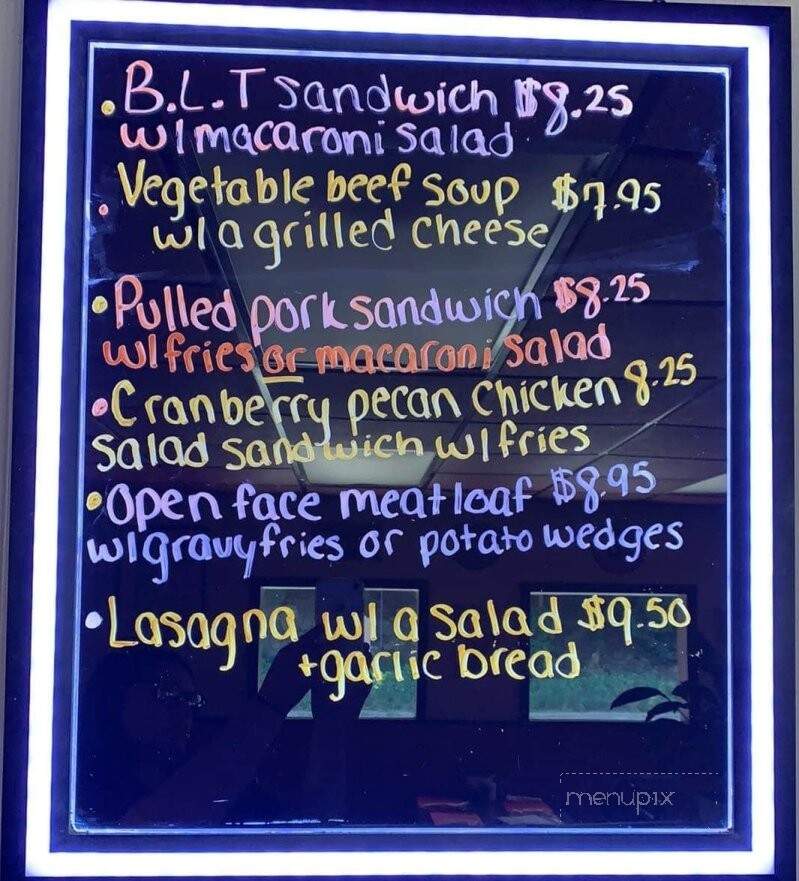 B.L.T sandwich $8.25
w/macaroni salad
Vegetable beef soup $7.95
w/a grilled cheese
Pulled pork sandwich $8.25
w/fries or macaroni salad
Cranberry pecan chicken 8.25
Salad sandwich w/fries
Open face meatloaf $8.95
w/gravy fries or potato wedges
Lasagna w/ a Salad $9.50
+garlic bread
menupix